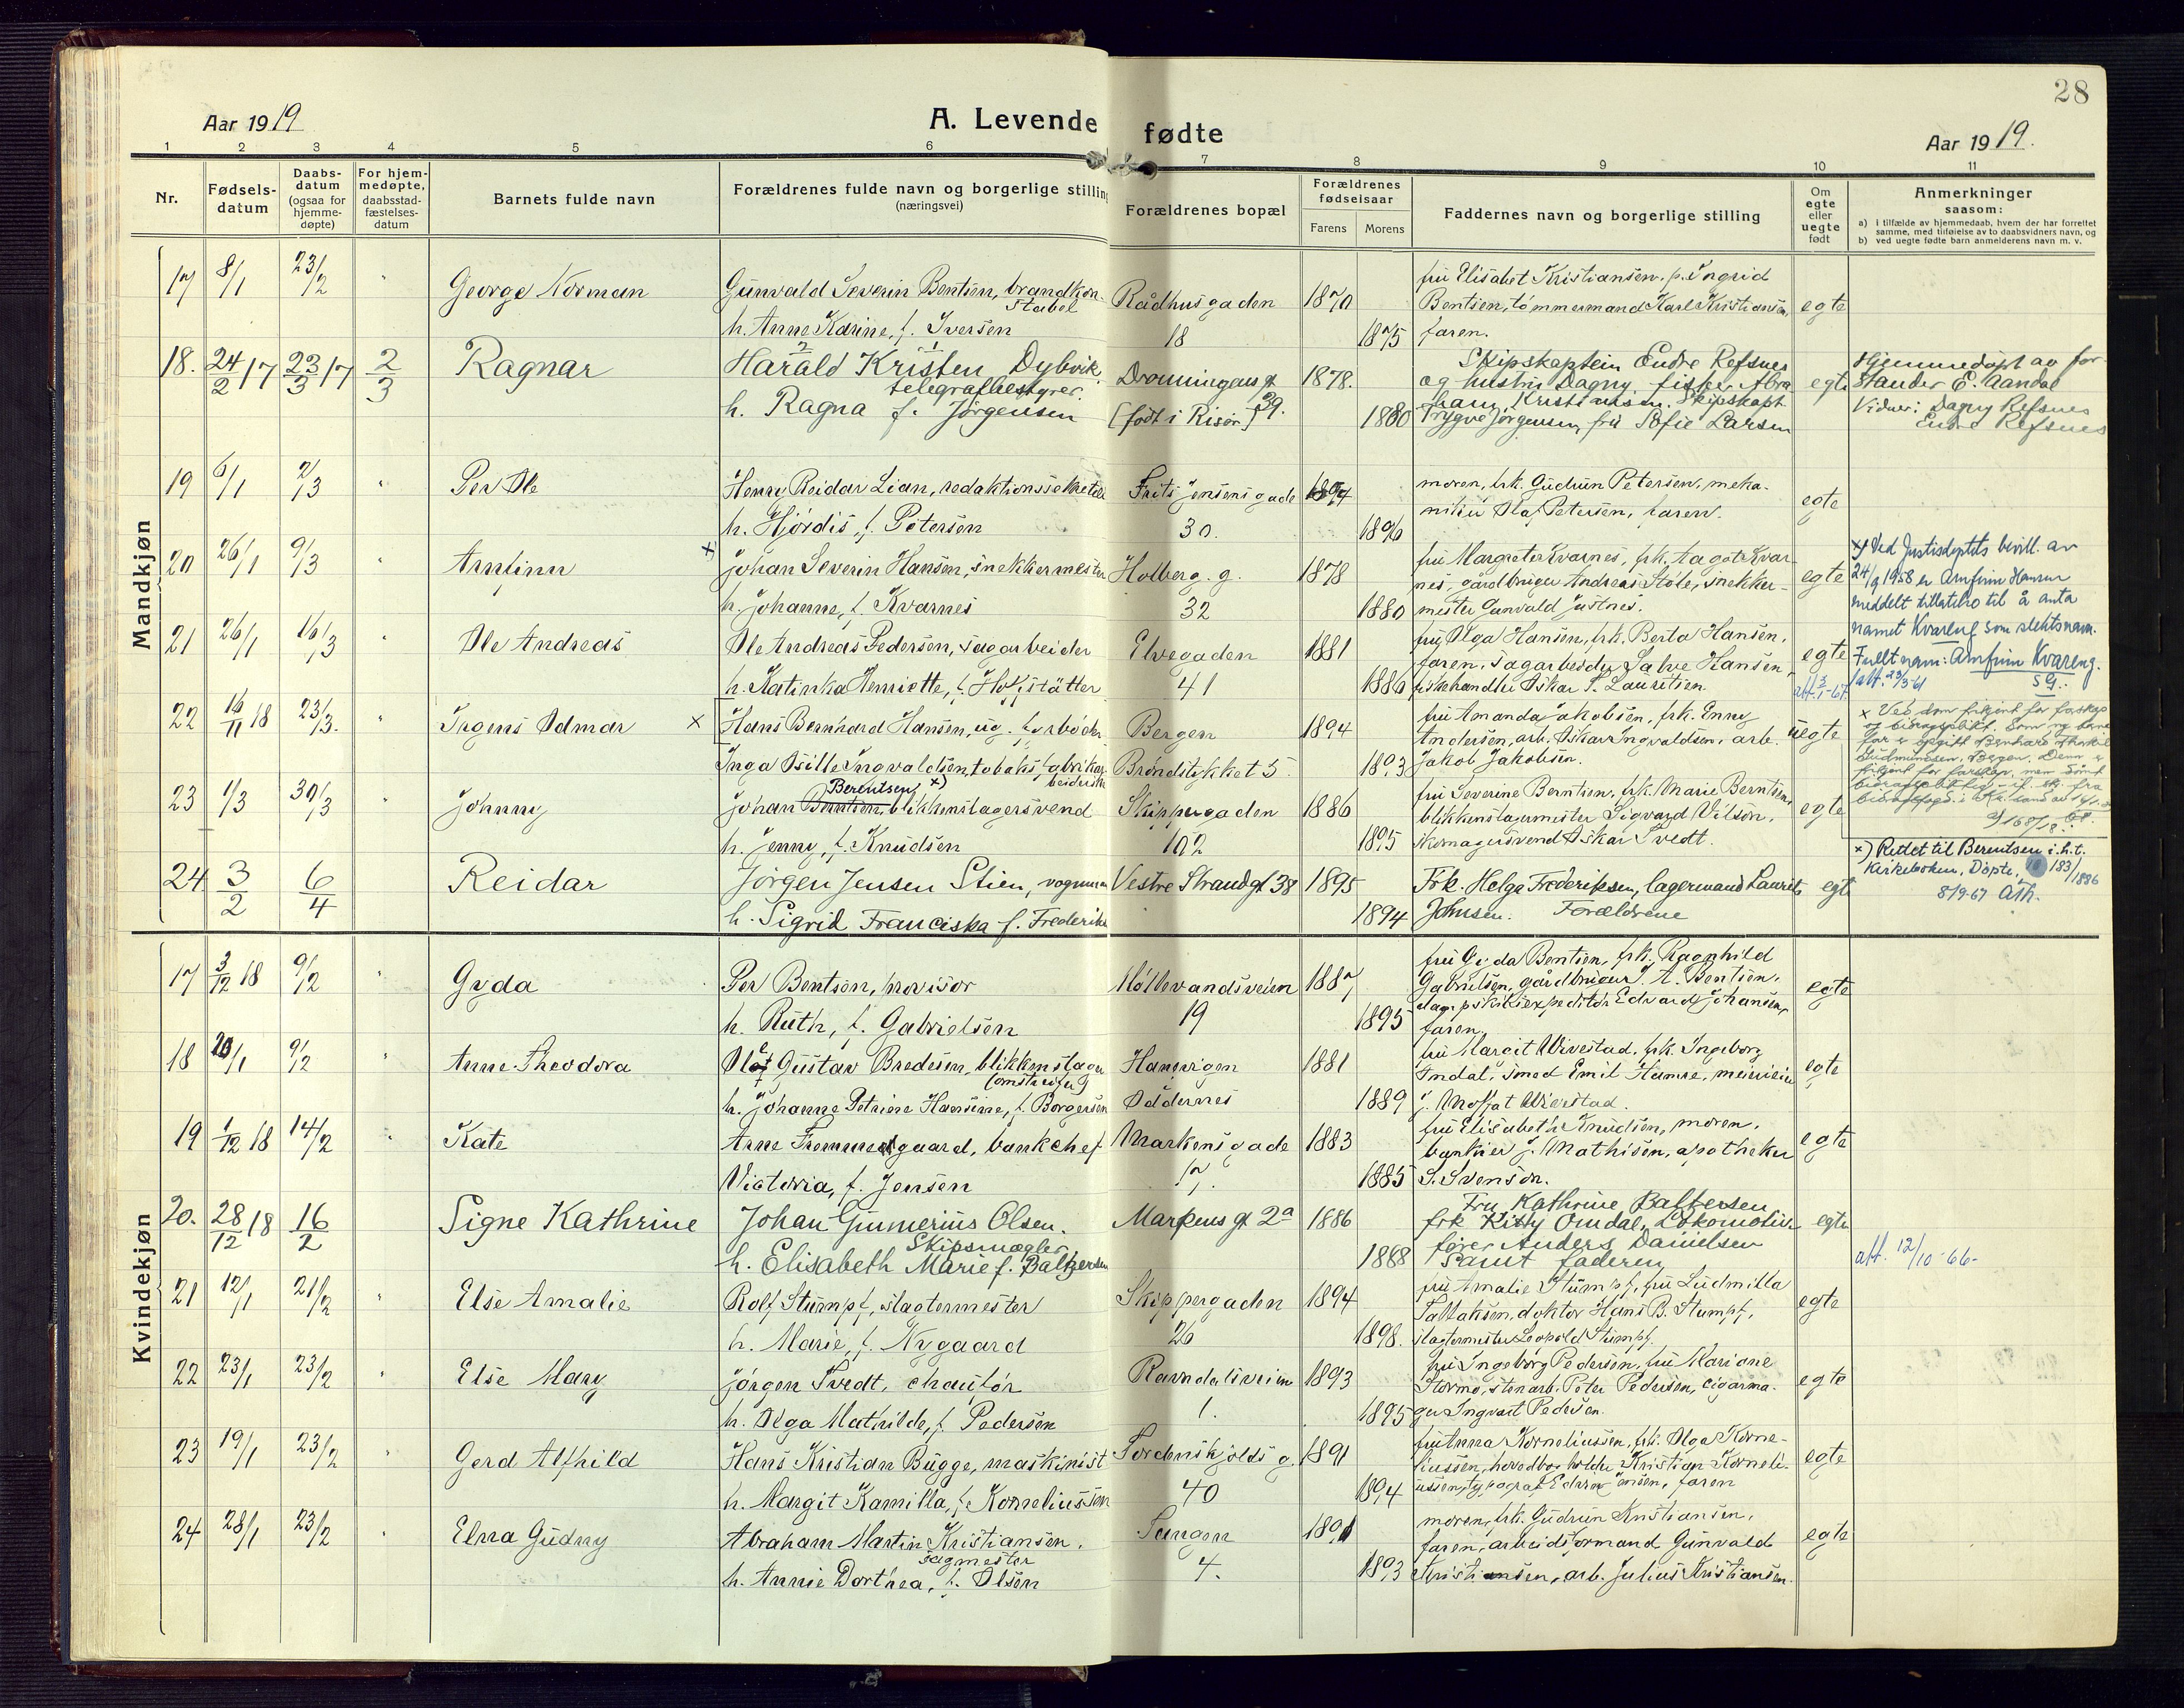 28
Aar 1919
A. Levende fødte
Aar 1919.
1 2 3 4 5 6 7 8 9 10 11
Nr.
Fødsels-
datum
Daabs-
datum
(ogsaa for
hjemme-
døpte)
For hjem-
medøpte,
daabsstad-
fæstelses-
datum
Barnets fulde navn
Forældrenes fulde navn og borgerlige stilling
(næringsvei)
Forældrenes bopæl
Forældrenes
fødselsaar
Farens Morens
Faddernes navn og borgerlige stilling
Om
egte
eller
uegte
født
Anmerkninger
saasom:
a) i tilfælde av hjemmedaab, hvem der har forrettet
samme, med tilføielse av to daabsvidners navn, og
b) ved uegte fødte barn anmelderens navn m. v.
Mandkjøn
17 8/1 23/2 " George Norman Gunvald Severin Bentsen, brandkon- Raadhusgaden 1870 fru Elisabet Kristiansen, f. Ingrid
stabel Bentsen, tømmermand Karl Kristiansen, egte
h. Anne Karine, f. Iversen 18 1875 faren.
18. 24/2 17 23/3 17 2/3 Ragnar Harald Kristen Dybvik, Dronningens gt 1878. Skipskaptein Endre Refsnes egte Hjemmedøpt av for-
telegrafbestyrer. 39. og hustru Dagny, fisker Abra- stander E. Aandal
h. Ragna f. Jørgensen [født i Risør] 1880 ham Kristiansen, Skipskapt. Vidner: Dagny Refsnes
Trygve Jørgensen, fru Sofie Larsen Endre Refsnes
19 6/1 2/3 " Per Ole Henry Reidar Lian, redaktionssekretær Frits Jensens gade 1894 moren, frk. Gudrun Petersen, meka-
h. Hjørdis, f. Petersen 30. 1896 niker Olaf Petersen, faren. egte
20 26/1 9/3 " Arnfinn x Johan Severin Hansen, snekkermester Holberg. g. 1878 fru Margrete Kvarnes, frk. Aagot Kvar- egte
nes, gårdbruger Andreas Støle, snekker-
h. Johanne, f. Kvarnes 32 1880 mester Gunvald Justnes.
x) Ved Justisdeptets bevill. av
24/9 1958 er Arnfinn Hansen
meddelt tillatelse til å anta
navnet Kvareng som slektsnavn.
Fullt navn: Arnfinn Kvareng.
21 26/1 16/3 " Ole Andreas Ole Andreas Pedersen, sagarbeider Elvegaden 1881 fru Olga Hansen, frk. Berta Hansen, egte
faren, sagarbeider Salve Hansen,
h. Katinka Henriette, f. Hofstätter 41 1886 fiskehandler Oskar S. Lauritsen
22 16/11 18 23/3. " Irgens Odmar x Hans Bernhard Hansen, ug. fyrbøder Bergen 1894 fru Amanda Jakobsen, frk. Enny uegte
Andersen, arb. Oskar Ingvaldsen, arb.
Inga Osille Ingvaldsen, tobaksfabrikar- Brøndstykket 5 1893 Jakob Jakobsen.
beiderske
23 1/3 30/3 Johnny Berentsen x)
Johan Berntsen, blikkenslagersvend Skippergaden 1886 fru Severine Berntsen, frk. Marie Berntsen, egte
blikkenslagermester Sigvard Vilson,
h. Jenny, f. Knudsen 102 1895 skomagersvend Oskar Tvedt.
x) Rettet til Berentsen i h.t.
Kirkeboken, Døpte, 183/1886
8/9-67
24 3/2 6/4 Reidar Jørgen Jensen Stien, vognmand Vestre Strandgt 38 1895 Frk. Helga Frederiksen, lagermand Laurits egte
h. Sigrid Franciska f. Frederiks 1894 Johnsen. Forældrene
Kvindekjøn
17 3/12 18 9/2 " Gyda Per Bentsen, provisor Møllevandsveien 1887 fru Gyda Bentsen, frk. Ragnhild
Gabrielsen, gårdbruger T. A. Bentsen, egte
h. Ruth, f. Gabrielsen 19 1895 dampskibsexpeditør Edvard Johansen, faren.
18 20/1 9/2 " Anne Theodora Olaf Gustav Bredesen, blikkenslager Hanevigen 1881 fru Margit Wivestad, frk. Ingeborg egte
Omdal, smed Emil Hamre, meierieier
h. Johanne Petrine Hansine, f. Borgersen Oddernes 1889
19 1/12 18 14/2 " Kate Arne Fremmegaard, bankchef Markens gade 1883 fru Elisabeth Knudsen, moren, egte
bankier J. Mathisen, apotheker
Victoria, f. Jensen 17. 1885 S. Svenson.
20. 28/12 18 16/2 Signe Kathrine Johan Gunnerius Olsen. Markens gt 2a 1886 Fru Kathrine Baltzersen egte
Skipsmægler frk Kitty Omdal, Lokomotiv-
h. Elisabeth Marie f. Baltzersen 1888 fører Anders Danielsen
samt faderen
att. 12/10-66-
21 12/1 21/2 " Else Amalie Rolf Stumpf, slagtermester Skippergaden 1894 fru Amalie Stumpf, fru Ludmilla egte
Tallaksen, doktor Hans B. Stumpf,
h. Marie, f. Nygaard 26 1898. slagtermester Leopold Stumpf
22 23/1 23/2 " Else Mary Jørgen Tvedt, chauffør Ravnedalsveien 1893 fru Ingeborg Pedersen, fru Mariane egte
Stormo, stenarb. Peter Pedersen, cigarma-
h. Olga Mathilde, f. Pedersen 1. 1895 ger Ingvart Pedersen.
23 19/1 23/2 " Gerd Alfhild Hans Kristian Bugge, maskinist Tordenskjolds g. 1891 fru Anna Korneliussen, frk. Olga Korne- egte
liussen, hovedbokholder Kristian Korneli-
h. Margit Kamilla, f. Korneliussen 40 1894 ussen, typograf Edvin Jensen, faren
24 28/1 23/2 " Elna Gudny Abraham Martin Kristiansen, Tangen 1891 moren, frk. Gudrun Kristiansen, egte
sagmester faren, arbeidsformand Gunvald
h. Annie Dorthea, f. Olsen 4. 1893 Kristiansen, arb. Julius Kristiansen.